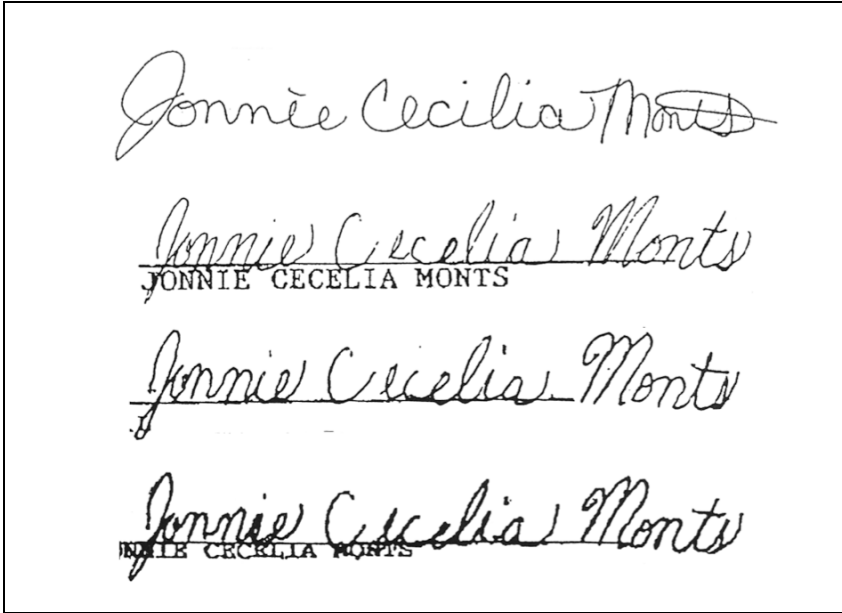 Jonnie Cecilia Monts
Jonnie Cecelia Monts
JONNIE CECELIA MONTS
Jonnie Cecelia Monts
Jonnie Cecelia Monts
NNIE CECELIA MONTS